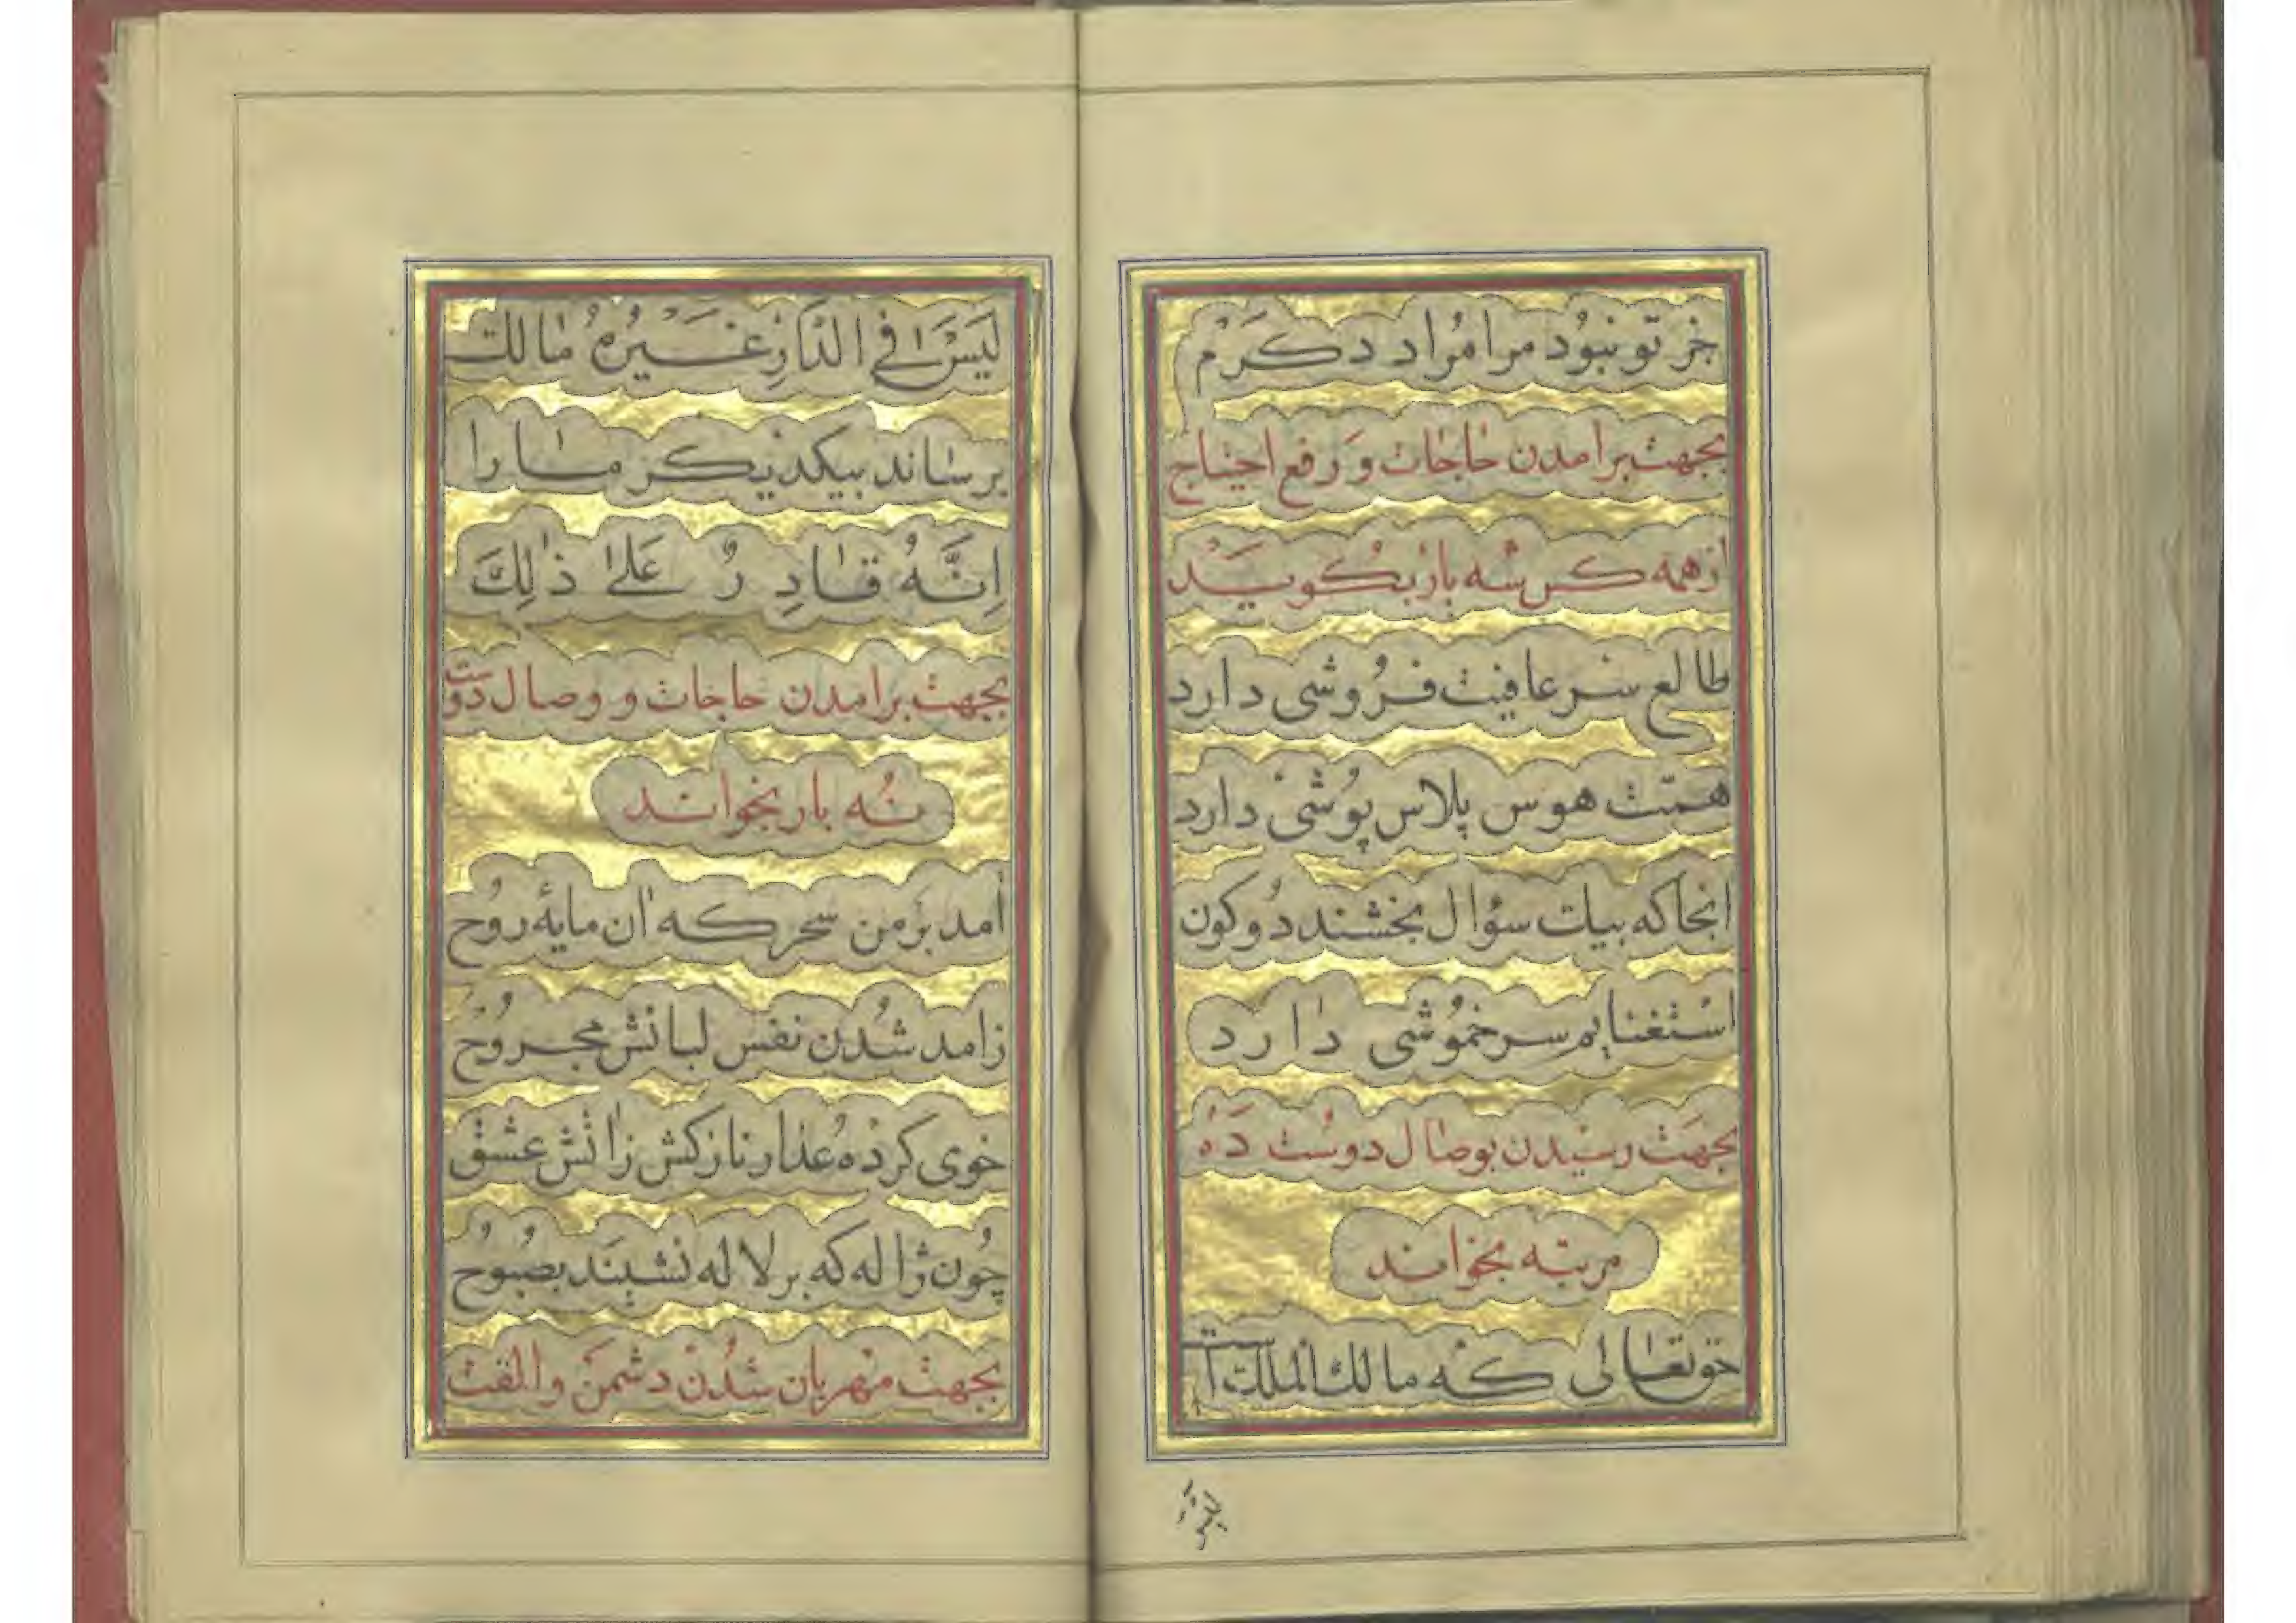 جز تو نبود مرا مراد دکرم
بجهت برامدن حاجات و رفع احتیاج
ازهمه کس سه بار بکویید
طالع سر عافیت فروشی دارد
همّت هوس پلاس پوشی دارد
انجا که بیک سؤال بخشند دو کون
استغنایم سر خموشی دارد
بجهت رسیدن بوصال دوست ده
مرتبه بخواند
حق تعالی که مالک الملک است
لیس
لَیْسَ فِی الدّارِ غَیْرُهُ مالک
برساند بیکدیکر ما را
اِنَّهُ قادِرٌ عَلیٰ ذٰلِکَ
بجهت برامدن حاجات و وصال دوست
نُه بار بخواند
امد بر من سحر که ان مایهٔ روح
زامد شدن نفس لبانش مجروح
خوی کرده عذار نازکش زاتش عشق
چون ژاله که بر لاله نشیند بصبوح
بجهت مهربان شدن دشمن و الفت